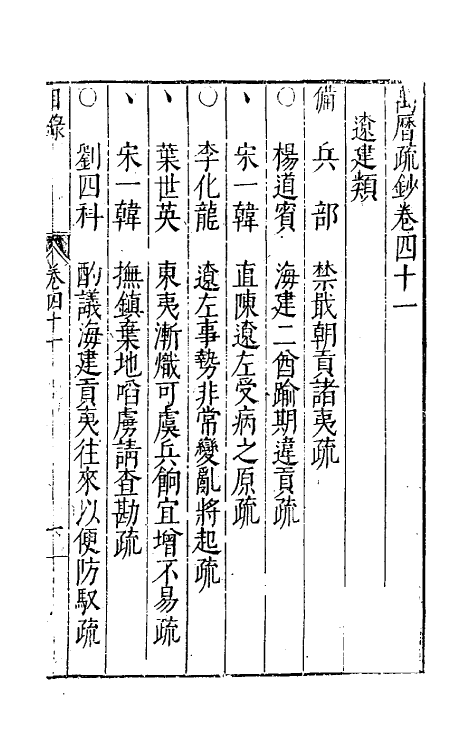 萬曆疏鈔卷四十一
遼建類
備 兵部 禁戢朝貢諸夷疏
○ 楊道賓 海建二酋踰期違貢疏
、 宋一韓 直陳遼左受病之原疏
○ 李化龍 遼左事勢非常變亂將起疏
、 葉世英 東夷漸熾可虞兵餉宜增不易疏
、 宋一韓 撫鎮棄地啗虜請查勘疏
○ 劉四科 酌議海建貢夷往來以便防馭疏
目錄 卷四十一 六